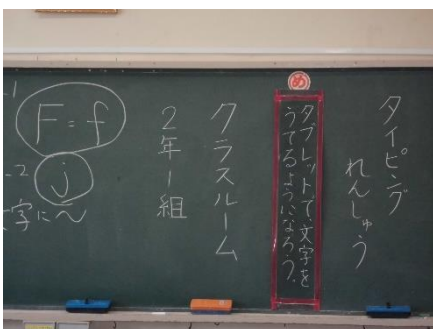 タイピング
れんしゅう
め
タブレットで文字を
うてるようになろう。
クラスルーム
2年1組
-1
F=f
-2
j
文字に〜